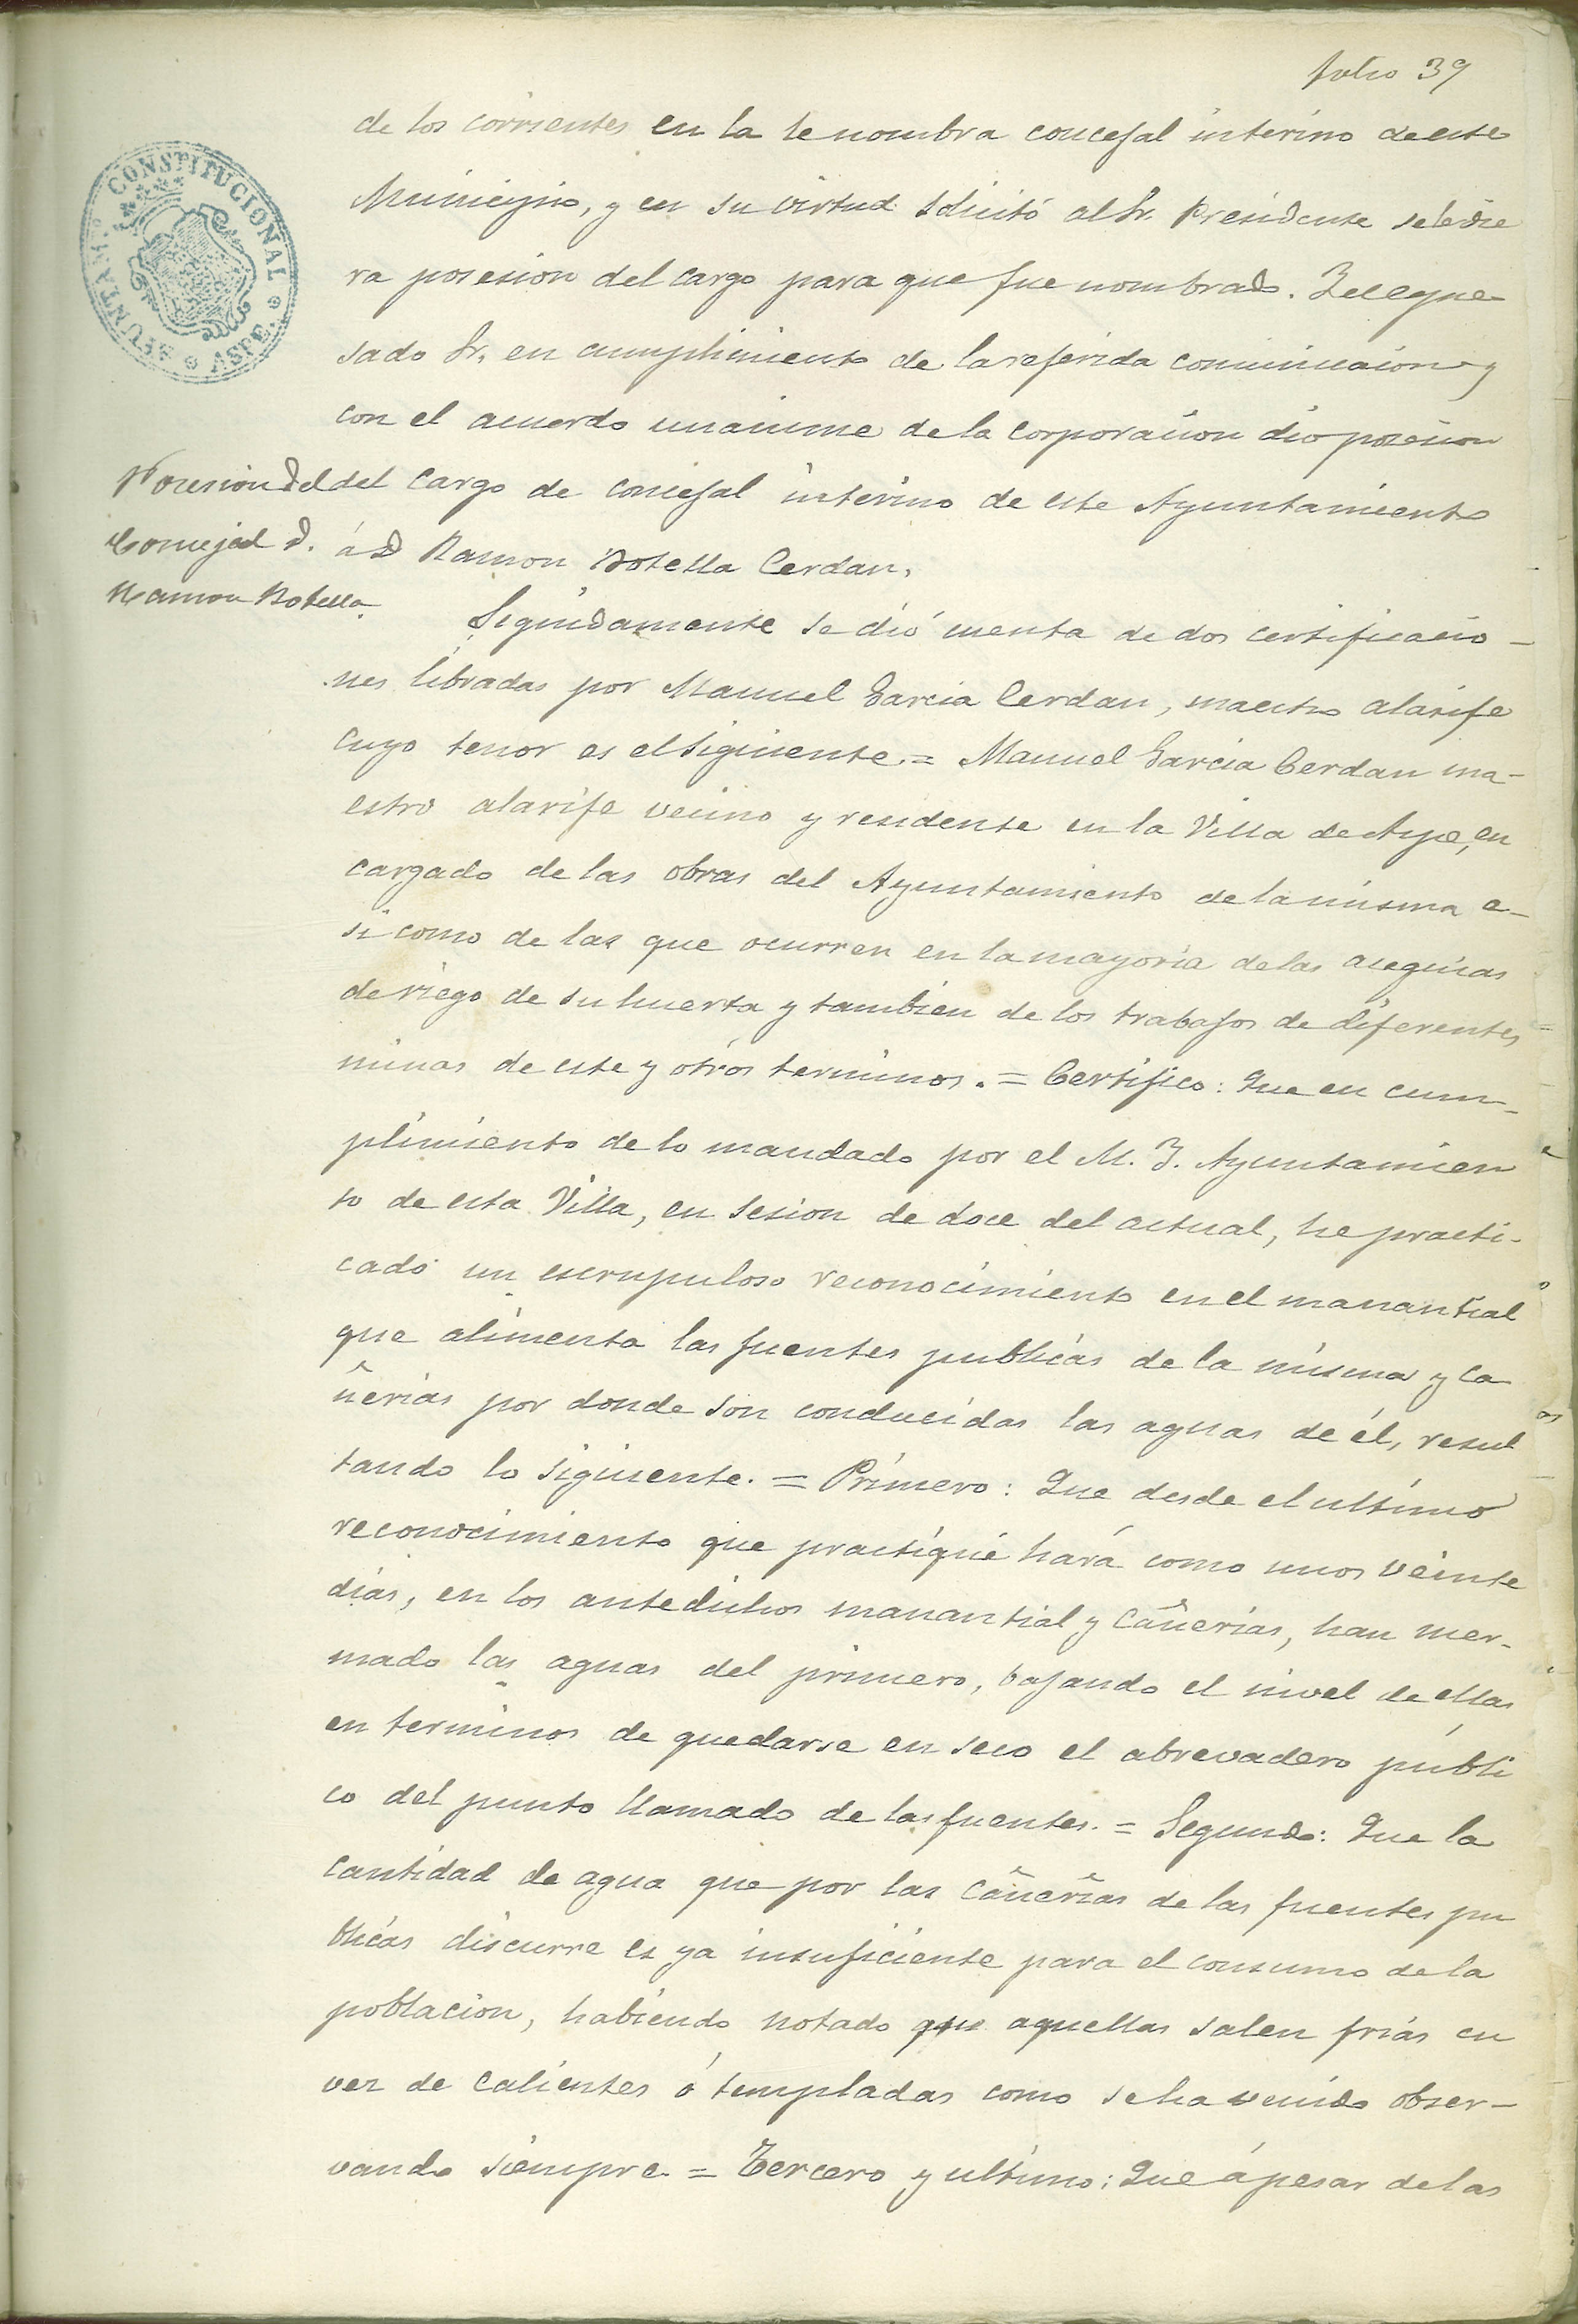 folio 39
AYUNTAM.TO CONSTITUCIONAL * ASPE *
de los corrientes en la le nombra concejal interino de este
Municipio, y en su virtud solicitó al Sr. Presidente se le die
ra posesion del cargo para que fue nombrado. Y el expre-
sado Sr. en cumplimiento de la referida comunicacion y
con el acuerdo unanime de la corporacion dio posesion
Posesion del
Concejal D.
Ramon Botella.
del cargo de concejal interino de este Ayuntamiento
á D Ramon Botella Cerdan.
Seguidamente se dió cuenta de dos certificacio-
nes libradas por Manuel Garcia Cerdan, maestro alarife
cuyo tenor es el siguiente.= Manuel Garcia Cerdan ma-
estro alarife vecino y residente en la Villa de Aspe, en
cargado de las obras del Ayuntamiento de la misma a-
si como de las que ocurren en la mayoría de las acequias
de riego de su huerta y tambien de los trabajos de diferentes
minas de este y otros terminos.= Certifico: Que en cum-
plimiento de lo mandado por el M. I. Ayuntamien
to de esta Villa, en sesion de doce del actual, he practi-
cado un escrupuloso reconocimiento en el manantial
que alimenta las fuentes publicas de la misma y ca
ñerias por donde son conducidas las aguas de él, resul
tando lo siguiente.= Primero: Que desde el ultimo
reconocimiento que practiqué hará como unos veinte
dias, en los antedichos manantial y cañerias, han mer-
mado las aguas del primero, bajando el nivel de ellas
en terminos de quedarse en seco el abrevadero públi
co del punto llamado de las fuentes.= Segundo: Que la
cantidad de agua que por las cañerias de las fuentes pu
blicas discurre es ya insuficiente para el consumo de la
poblacion, habiendo notado que aquellas salen frias en
vez de calientes ó templadas como se ha venido obser-
vando siempre.= Tercero y ultimo: Que á pesar de las